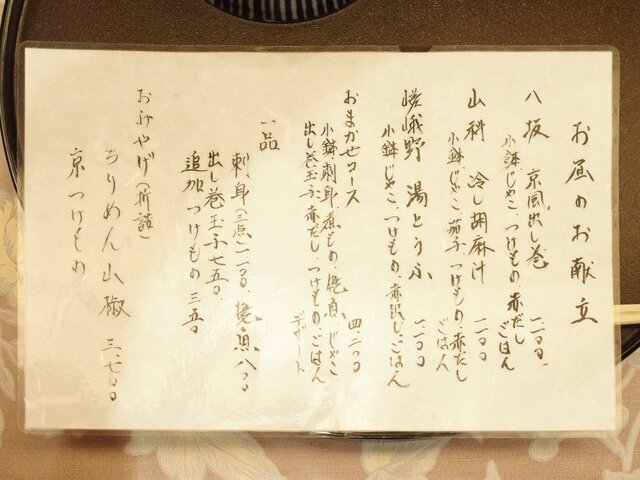 お昼のお献立
八坂 京風出し巻 一、一〇〇、
小鉢、じゃこ、つけもの、赤だし
ごはん
山科 冷し胡麻汁 一、一〇〇
小鉢、じゃこ、茄子、つけもの、赤だし
ごはん
嵯峨野 湯とうふ 一、一〇〇
小鉢、じゃこ、つけもの、赤出し、ごはん
おまかせコース 四、二〇〇
小鉢、刺身、煮もの、焼魚、じゃこ
出し巻玉子、赤だし、つけもの、ごはん
デザート
一品
刺身(三点)一、一〇〇、焼魚八〇〇
出し巻玉子七五〇、
追加つけもの三五〇
おみやげ(折詰)
ちりめん山椒 三、七〇〇
京つけもの